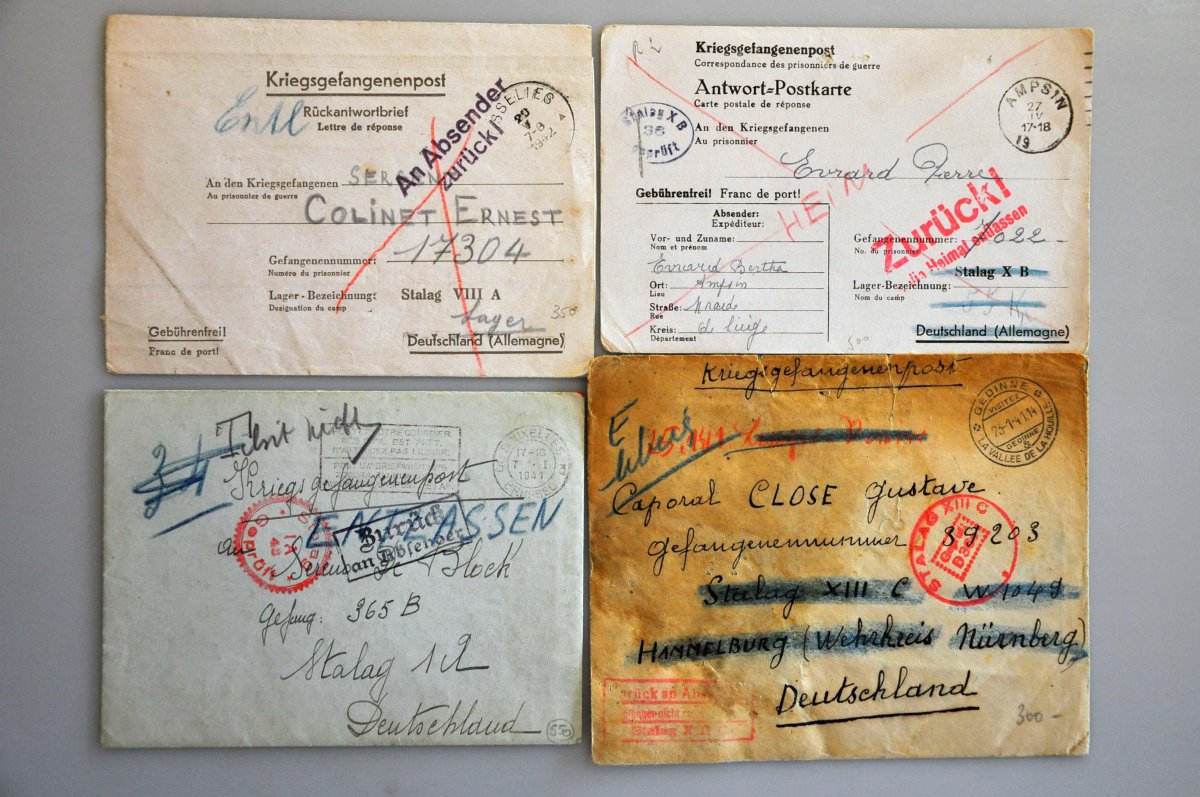 Kriegsgefangenenpost
Entl
Rückantwortbrief
Lettre de réponse
An Absender
zurück!
20
V
7-8
1942
An den Kriegsgefangenen
Au prisonnier de guerre
COLINET ERNEST
Gefangenennummer: 17304
Numéro du prisonnier
Lager-Bezeichnung: Stalag VIII A
Désignation du camp
Lager
350
Gebührenfrei!
Franc de port!
Deutschland (Allemagne)
Kriegsgefangenenpost
Correspondance des prisonniers de guerre
Antwort-Postkarte
Carte postale de réponse
Stalag X B
36
Geprüft
AMPSIN
27
IV
17-18
19
An den Kriegsgefangenen
Au prisonnier
Evrard Pierre
Gebührenfrei! Franc de port!
HEIM
Zurück!
Heimat entlassen
Absender:
Expéditeur:
Vor- und Zuname:
Nom et prénom
Evrard Bertha
Ort: Ampsin
Lieu
Straße:
Rue
Kreis: de Liége
Département
Gefangenennummer: 022
No. du prisonnier
Stalag X B
Lager-Bezeichnung:
Nom du camp
Deutschland (Allemagne)
500
nicht
17-18
7 I
1941
Kriegsgefangenenpost
ENTLASSEN
Zurück
an Absender
An
Geprüft
Block
Gefang: 365 B
Stalag
Deutschland
550
Kriegsgefangenenpost
GEDINNE
VISITEZ
GEDINNE
&
LA VALLEE DE LA HOUILLE
E
Caporal CLOSE Gustave
Gefangenennummer 39203
STALAG XIII C
Stalag XIII C W 1049
HAMMELBURG (Wehrkreis Nürnberg)
Deutschland
300-